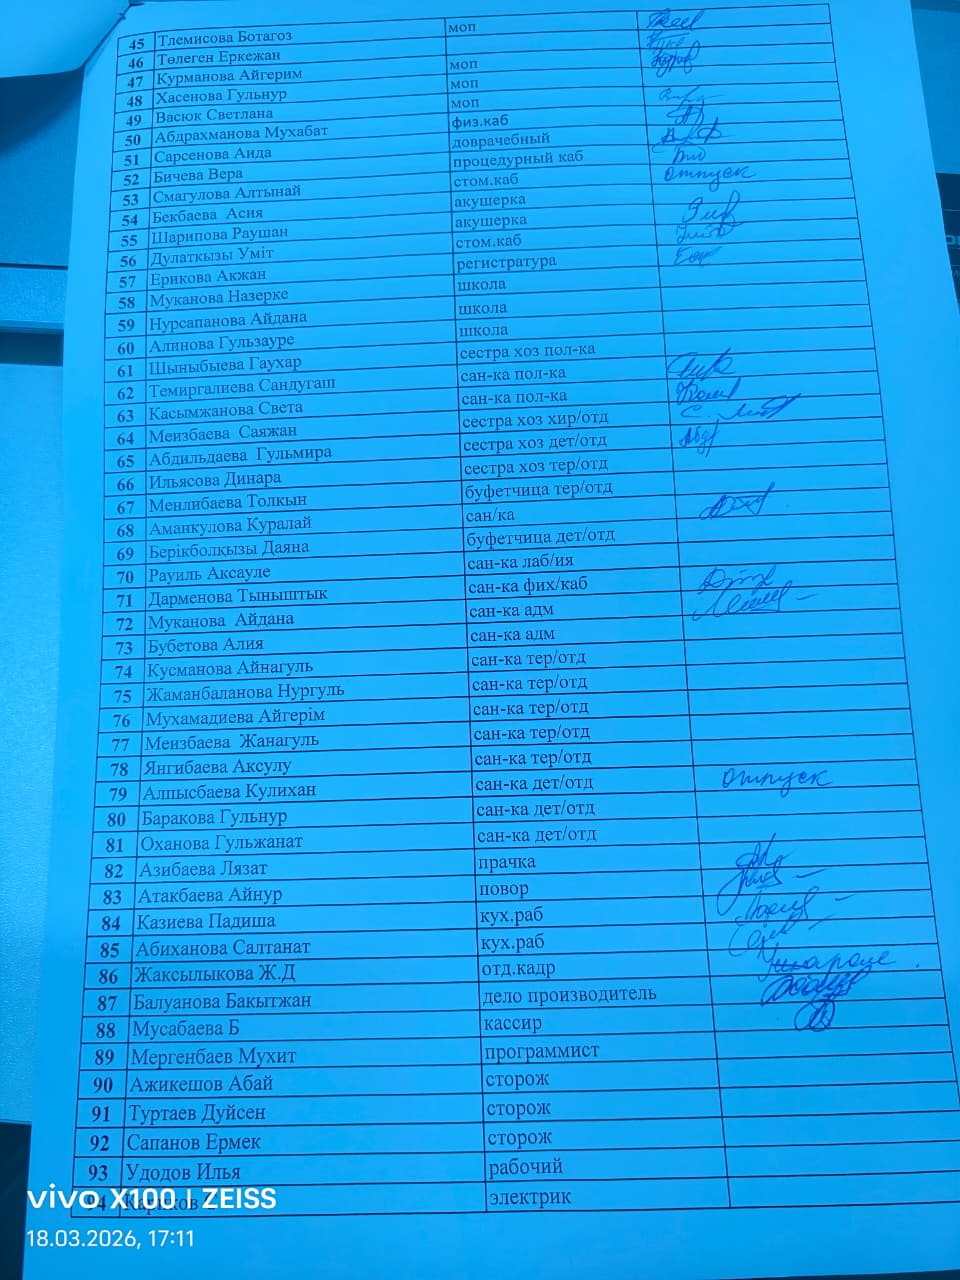 45 Тлемисова Ботагоз моп
46 Төлеген Еркежан
47 Курманова Айгерим моп
48 Хасенова Гульнур моп
49 Васюк Светлана моп
50 Абдрахманова Мухабат физ.каб
51 Сарсенова Аида доврачебный
52 Бичева Вера процедурный каб
53 Смагулова Алтынай стом.каб отпуск
54 Бекбаева Асия акушерка
55 Шарипова Раушан акушерка
56 Дулаткызы Уміт стом.каб
57 Ерикова Акжан регистратура
58 Муканова Назерке школа
59 Нурсапанова Айдана школа
60 Алинова Гульзауре школа
61 Шыныбыева Гаухар сестра хоз пол-ка
62 Темиргалиева Сандугаш сан-ка пол-ка
63 Касымжанова Света сан-ка пол-ка
64 Меизбаева Саяжан сестра хоз хир/отд
65 Абдильдаева Гульмира сестра хоз дет/отд
66 Ильясова Динара сестра хоз тер/отд
67 Менлибаева Толкын буфетчица тер/отд
68 Аманкулова Куралай сан/ка
69 Берікболқызы Даяна буфетчица дет/отд
70 Рауиль Аксауле сан-ка лаб/ия
71 Дарменова Тыныштык сан-ка фих/каб
72 Муканова Айдана сан-ка адм
73 Бубетова Алия сан-ка адм
74 Кусманова Айнагуль сан-ка тер/отд
75 Жаманбаланова Нургуль сан-ка тер/отд
76 Мухамадиева Айгерім сан-ка тер/отд
77 Меизбаева Жанагуль сан-ка тер/отд
78 Янгибаева Аксулу сан-ка тер/отд
79 Алпысбаева Кулихан сан-ка дет/отд отпуск
80 Баракова Гульнур сан-ка дет/отд
81 Оханова Гульжанат сан-ка дет/отд
82 Азибаева Лязат прачка
83 Атакбаева Айнур повор
84 Казиева Падиша кух.раб
85 Абиханова Салтанат кух.раб
86 Жаксылыкова Ж.Д отд.кадр
87 Балуанова Бакытжан дело производитель
88 Мусабаева Б кассир
89 Мергенбаев Мухит программист
90 Ажикешов Абай сторож
91 Туртаев Дуйсен сторож
92 Сапанов Ермек сторож
93 Удодов Илья рабочий
94 электрик
vivo X100 | ZEISS
18.03.2026, 17:11